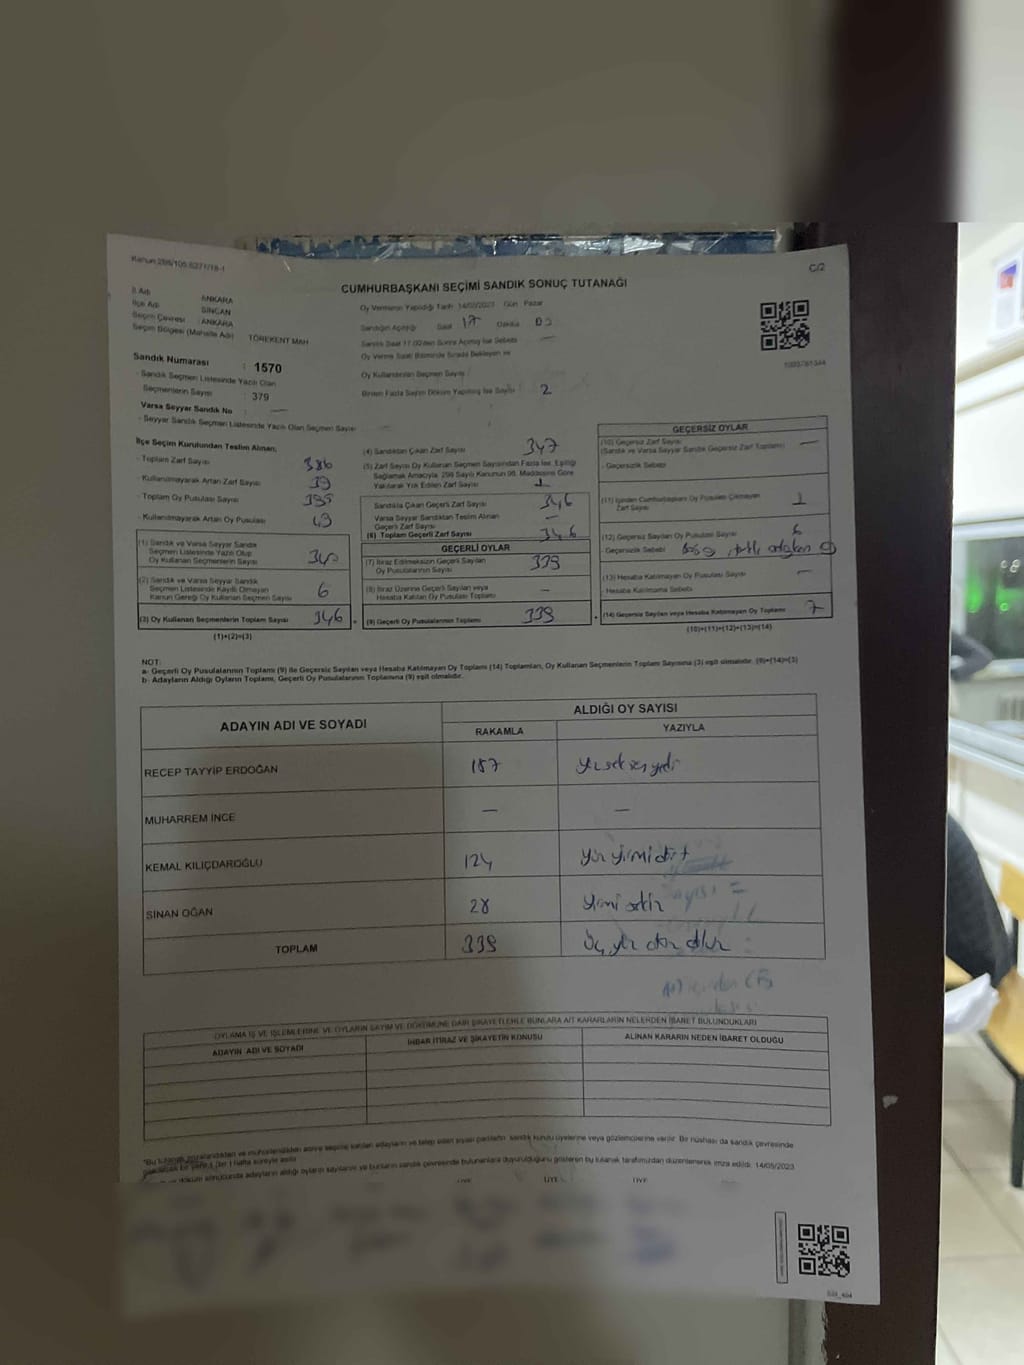 Kanun:298/105-6271/18-1
C/2
CUMHURBAŞKANI SEÇİMİ SANDIK SONUÇ TUTANAĞI
İl Adı : ANKARA
İlçe Adı : SİNCAN
Seçim Çevresi : ANKARA
Seçim Bölgesi (Mahalle Adı) : TÖREKENT MAH
Oy Vermenin Yapıldığı Tarih 14/05/2023 Gün Pazar
Sandığın Açıldığı Saat 17 Dakika
Sandık Saat 17.00'den Sonra Açılmış İse Sebebi —
Oy Verme Saati Bitiminde Sırada Bekleyen ve
Oy Kullandırılan Seçmen Sayısı
Birden Fazla Sayım Döküm Yapılmış İse Sayısı : 2
Sandık Numarası : 1570
- Sandık Seçmen Listesinde Yazılı Olan
Seçmenlerin Sayısı : 379
Varsa Seyyar Sandık No : —
- Seyyar Sandık Seçmen Listesinde Yazılı Olan Seçmen Sayısı
İlçe Seçim Kurulundan Teslim Alınan;
- Toplam Zarf Sayısı 386
- Kullanılmayarak Artan Zarf Sayısı 39
- Toplam Oy Pusulası Sayısı
- Kullanılmayarak Artan Oy Pusulası
(1) Sandık ve Varsa Seyyar Sandık
Seçmen Listesinde Yazılı Olup
Oy Kullanan Seçmenlerin Sayısı 340
(2) Sandık ve Varsa Seyyar Sandık
Seçmen Listesinde Kaydı Olmayan
Kanun Gereği Oy Kullanan Seçmen Sayısı 6
(3) Oy Kullanan Seçmenlerin Toplam Sayısı 346
(1)+(2)=(3)
(4) Sandıktan Çıkan Zarf Sayısı 347
(5) Zarf Sayısı Oy Kullanan Seçmen Sayısından Fazla İse, Eşitliği
Sağlamak Amacıyla, 298 Sayılı Kanunun 98. Maddesine Göre
Yakılarak Yok Edilen Zarf Sayısı 1
Sandıkta Çıkan Geçerli Zarf Sayısı 346
Varsa Seyyar Sandıktan Teslim Alınan
Geçerli Zarf Sayısı —
(6) Toplam Geçerli Zarf Sayısı 346
GEÇERLİ OYLAR
(7) İtiraz Edilmeksizin Geçerli Sayılan
Oy Pusulasının Sayısı 339
(8) İtiraz Üzerine Geçerli Sayılan veya
Hesaba Katılan Oy Pusulası Toplamı —
(9) Geçerli Oy Pusulalarının Toplamı 339
GEÇERSİZ OYLAR
(10) Geçersiz Zarf Sayısı —
(Sandık ve Varsa Seyyar Sandık Geçersiz Zarf Toplamı)
- Geçersizlik Sebebi
(11) İçinden Cumhurbaşkanı Oy Pusulası Çıkmayan
Zarf Sayısı 1
(12) Geçersiz Sayılan Oy Pusulası Sayısı 6
- Geçersizlik Sebebi
(13) Hesaba Katılmayan Oy Pusulası Sayısı —
- Hesaba Katılmama Sebebi
(14) Geçersiz Sayılan veya Hesaba Katılmayan Oy Toplamı 7
(10)+(11)+(12)+(13)=(14)
NOT:
a- Geçerli Oy Pusulalarının Toplamı (9) ile Geçersiz Sayılan veya Hesaba Katılmayan Oy Toplamı (14) Toplamları, Oy Kullanan Seçmenlerin Toplam Sayısına (3) eşit olmalıdır. (9)+(14)=(3)
b- Adayların Aldığı Oyların Toplamı, Geçerli Oy Pusulalarının Toplamına (9) eşit olmalıdır.
ADAYIN ADI VE SOYADI
ALDIĞI OY SAYISI
RAKAMLA YAZIYLA
RECEP TAYYİP ERDOĞAN 187 yüzseksenyedi
MUHARREM İNCE — —
KEMAL KILIÇDAROĞLU 124 yüz yirmidört
SİNAN OĞAN 28 yirmi sekiz
TOPLAM 339 üç yüz otuz dokuz
OYLAMA İŞ VE İŞLEMLERİNE VE OYLARIN SAYIM VE DÖKÜMÜNE DAİR ŞİKAYETLERLE BUNLARA AİT KARARLARIN NELERDEN İBARET BULUNDUKLARI
ADAYIN ADI VE SOYADI İHBAR İTİRAZ VE ŞİKAYETİN KONUSU ALINAN KARARIN NEDEN İBARET OLDUĞU
ÜYE ÜYE